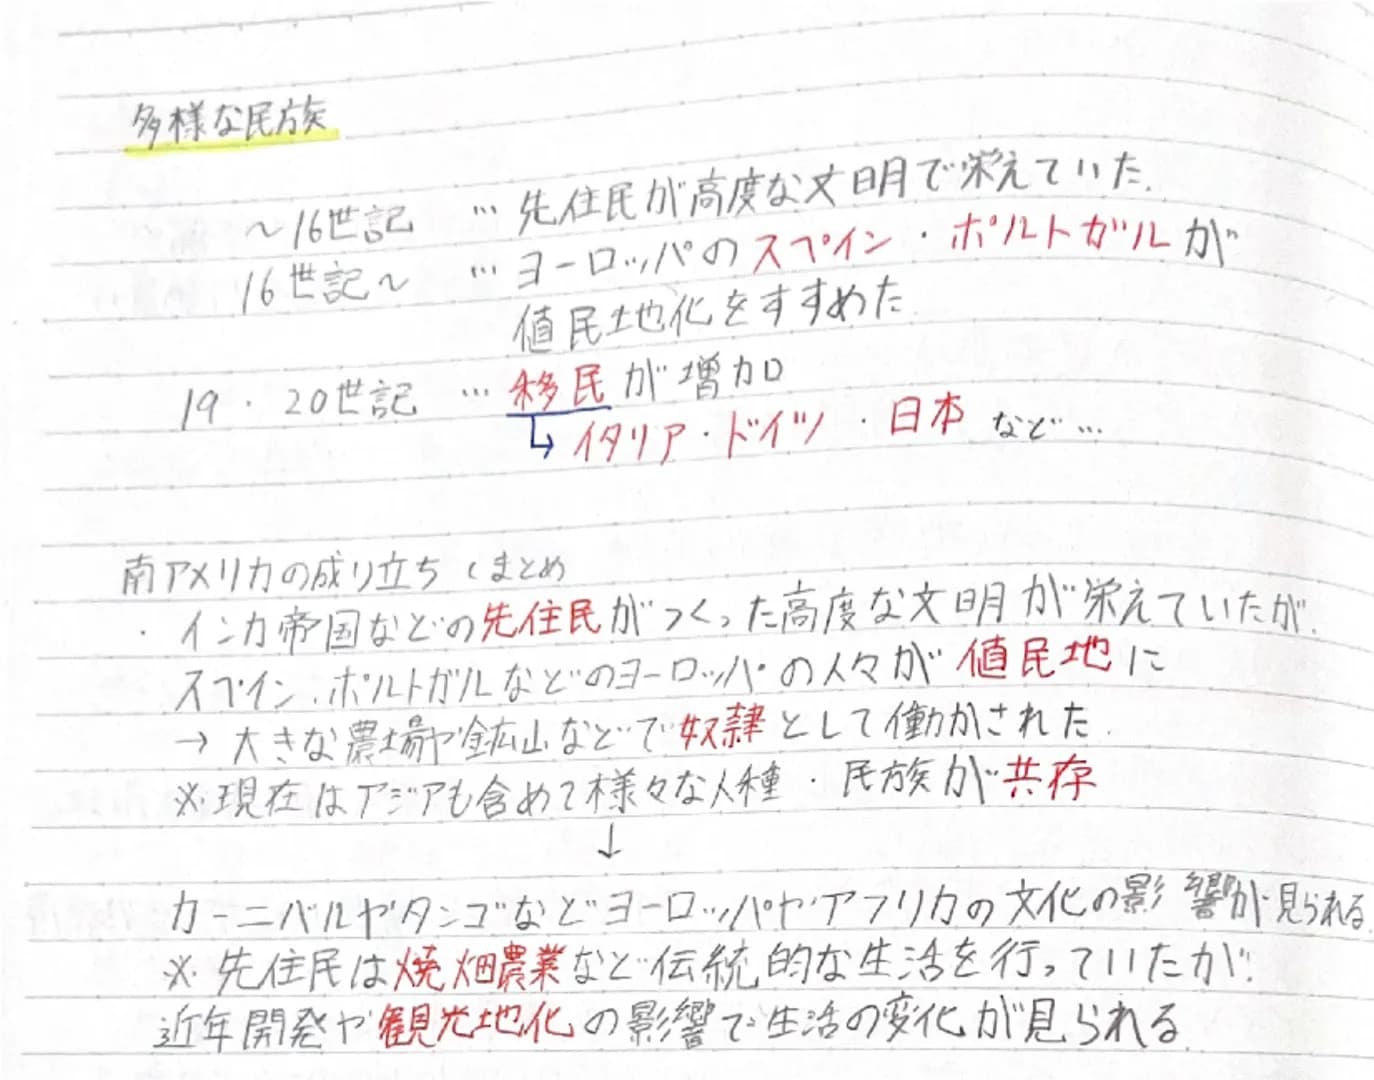 多様な民族
～16世記 … 先住民が高度な文明で栄えていた.
16世記～ … ヨーロッパのスペイン・ポルトガルが
値民地化をすすめた
19・20世記 … 移民が増加
↳イタリア・ドイツ・日本 など…
南アメリカの成り立ち (まとめ
・インカ帝国などの先住民がつくった高度な文明が栄えていたが.
スペイン.ポルトガルなどのヨーロッパの人々が値民地に
→ 大きな農場や鉱山などで奴隷として働かされた.
※現在はアジアも含めて様々な人種・民族が共存
↓
カーニバルやタンゴなどヨーロッパやアフリカの文化の影響が見られる.
※先住民は焼畑農業など伝統的な生活を行っていたが.
近年開発や観光地化の影響で生活の変化が見られる